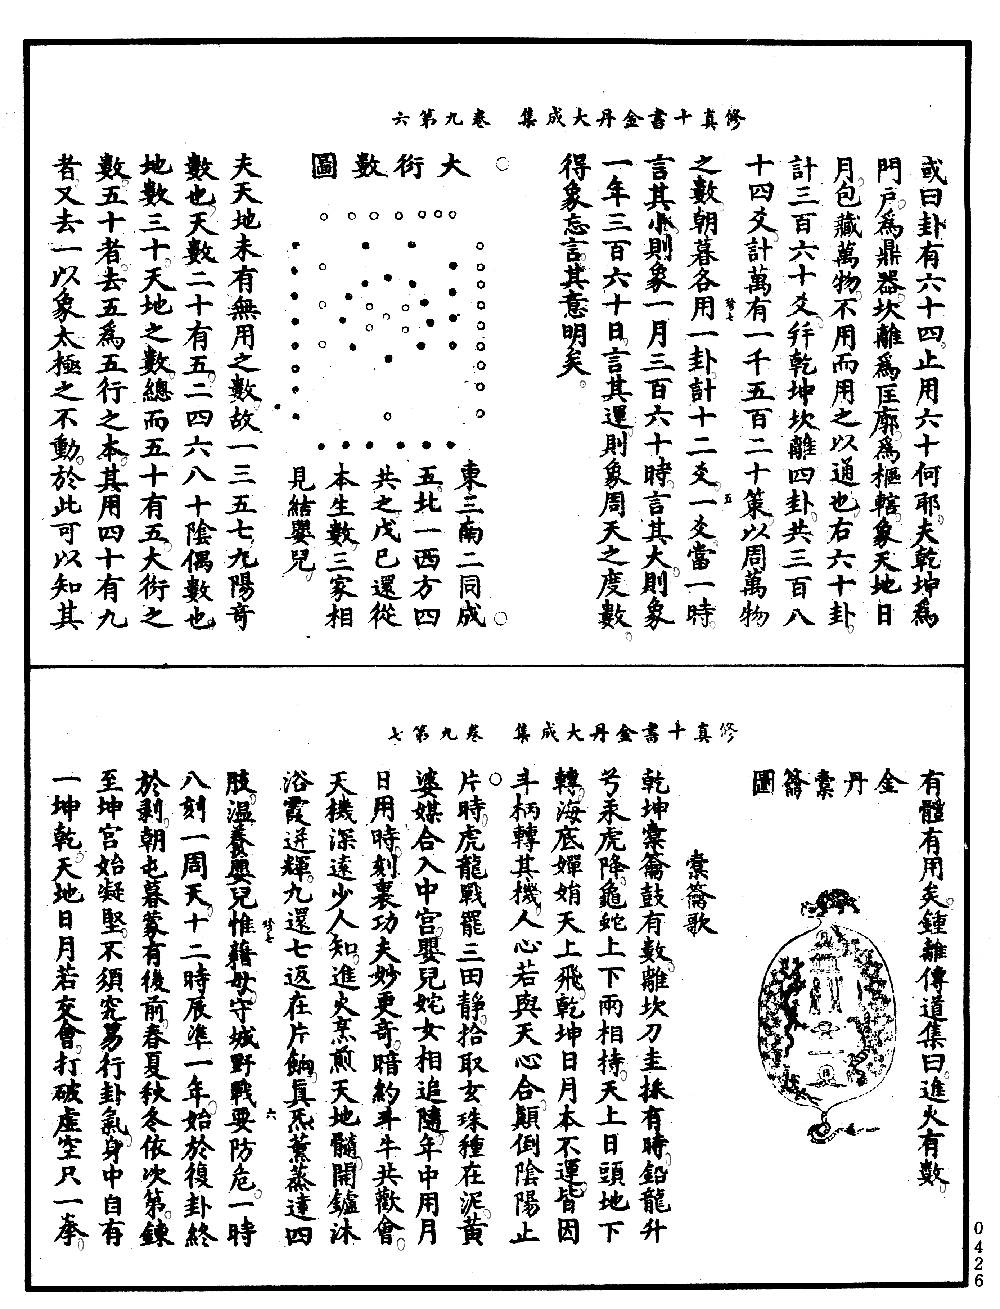 修真十書金丹大成集　卷九第六
或曰卦有六十四止用六十何耶夫乾坤為
門戶為鼎器坎離為匡廓為樞轄象天地日
月包藏萬物不用而用之以通也右六十卦
計三百六十爻并乾坤坎離四卦共三百八
十四爻計萬有一千五百二十策以周萬物
之數朝暮各用一卦計十二爻一爻當一時
言其小則象一月三百六十時言其大則象
一年三百六十日言其運則象周天之度數
得象忘言其意明矣
大衍數圖
東三南二同成
五北一西方四
共之戊己還從
本生數三家相
見結嬰兒
夫天地未有無用之數故一三五七九陽奇
數也天數二十有五二四六八十陰偶數也
地數三十天地之數總而五十有五大衍之
數五十者去五為五行之本其用四十有九
者又去一以象太極之不動於此可以知其
修真十書金丹大成集　卷九第七
有體有用矣鍾離傳道集曰進火有數
金丹橐籥圖
橐籥歌
乾坤橐籥鼓有數離坎刀圭採有時鉛龍升
兮汞虎降龜蛇上下兩相持天上日頭地下
轉海底嬋娟天上飛乾坤日月本不運皆因
斗柄轉其機人心若與天心合顛倒陰陽止
片時虎龍戰罷三田靜拾取玄珠種在泥黃
婆媒合入中宮嬰兒姹女相追隨年中用月
日用時刻裏功夫妙更奇暗約斗牛共歡會
天機深遠少人知進火烹煎天地髓開鑪沐
浴霞迸輝九還七返在片餉真炁薰蒸達四
肢溫養嬰兒惟藉母守城野戰要防危一時
八刻一周天十二時辰準一年始於復卦終
於剝朝屯暮蒙有後前春夏秋冬依次第鍊
至坤宮始凝堅不須究易行卦氣身中自有
一坤乾天地日月若交會打破虛空只一拳
0426